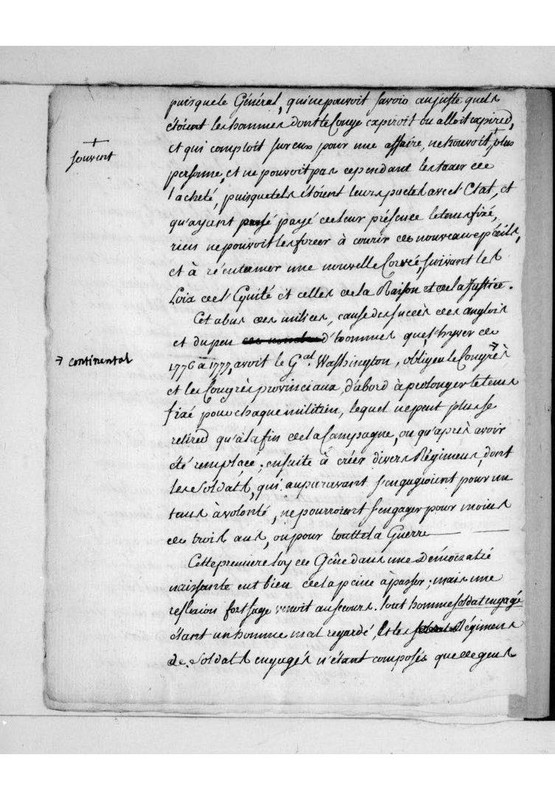 puisque le Général, qui ne pouvoit savoir au juste quels
étoient les hommes dont le Congé expiroit ou alloit expirer,
et qui comptoit sur eux pour une affaire, ne trouvoit + plus
+
souvent
personne, et ne pouvoit pas cependant les taxer de
lacheté, puisque tels étoient leurs pactes avec l'Etat, et
qu'ayant payé payé de leur présence le tems fixé,
rien ne pouvoit les forcer à courir de nouveaux périls,
et à recommencer une nouvelle Corvée, suivant les
Loix de l'Equité et celles de la Raison et de la Justice.
Cet abus des milices, cause des succès des anglois
et du peu d'hommes que l'hyver de
→ continental
1776 à 1777, avoit le Gal. Washington, obligea le Congrès →
et les Congrès provinciaux, d'abord à prolonger le tems
fixé pour chaque militien, lequel ne peut plus se
retirer qu'à la fin de la Campagne, ou qu'après avoir
été remplacé; ensuite à créer divers Régimens, dont
les Soldats, qui auparavant s'engageoient pour un
tems à volonté, ne pourroient s'engager pour moins
de trois ans, ou pour toutte la Guerre.
Cette premiere loy de Gêne dans une Démocratie
naissante eut bien de la peine à passer; mais une
reflexion fort sage venoit au secours. Tout homme soldat engagé
étant un homme mal regardé, et les Régimens
de Soldats engagés n'étant composés que de gens